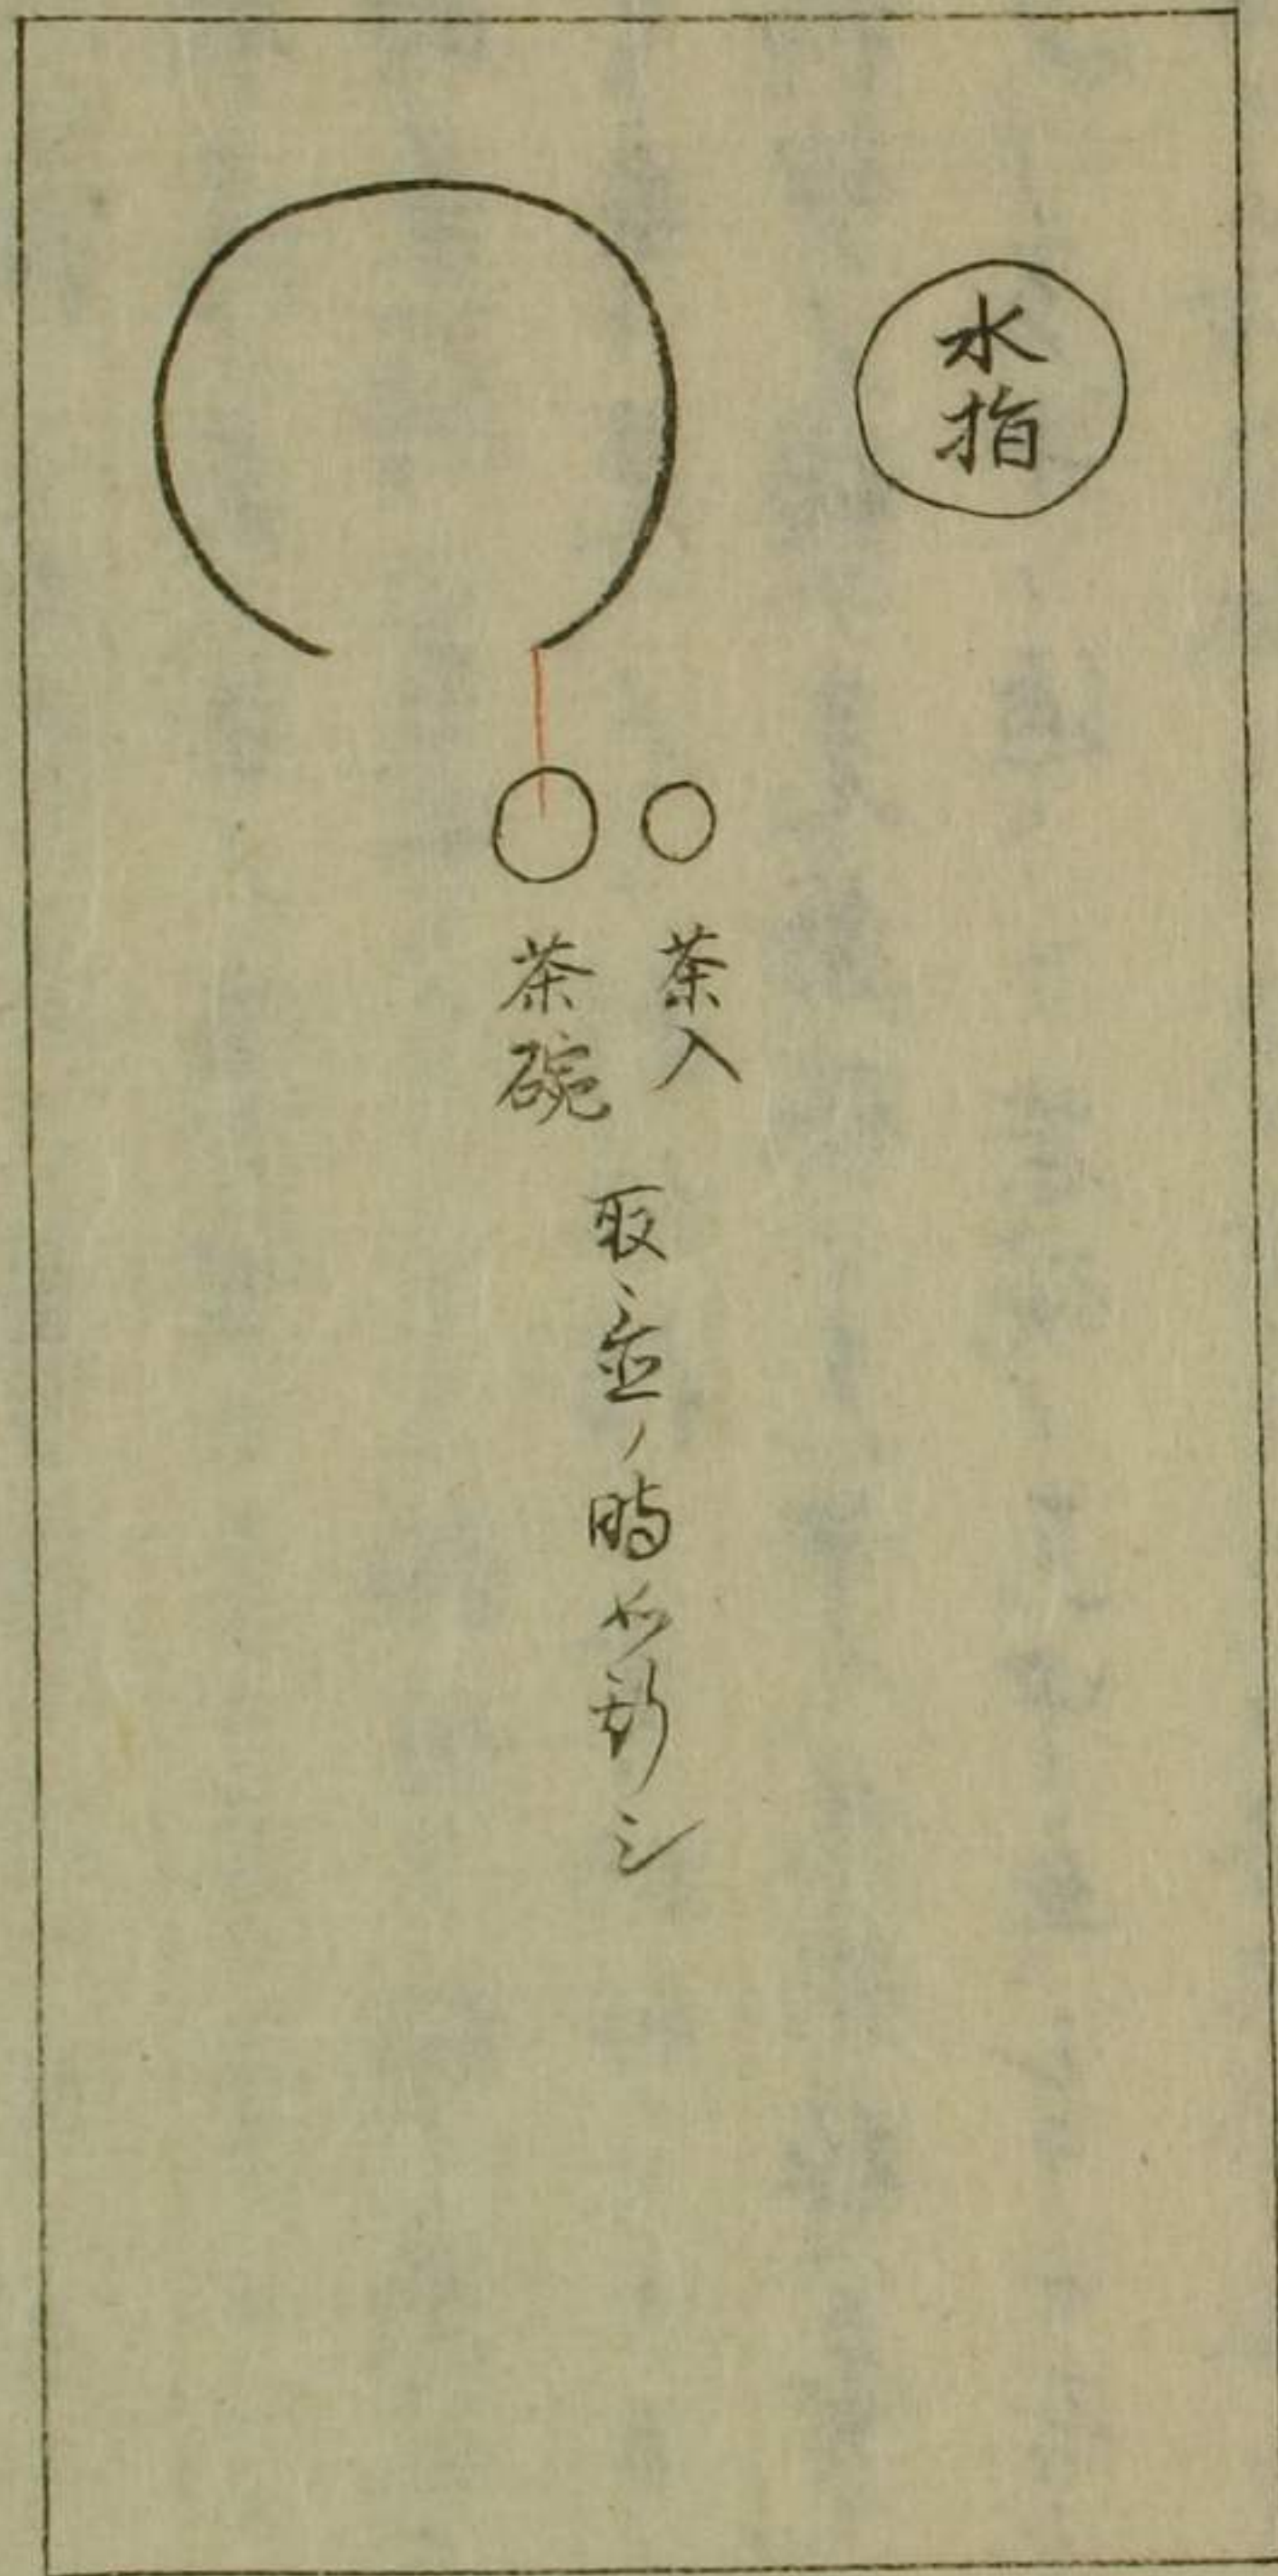 水指
茶入
茶碗
取並ノ時如斯シ